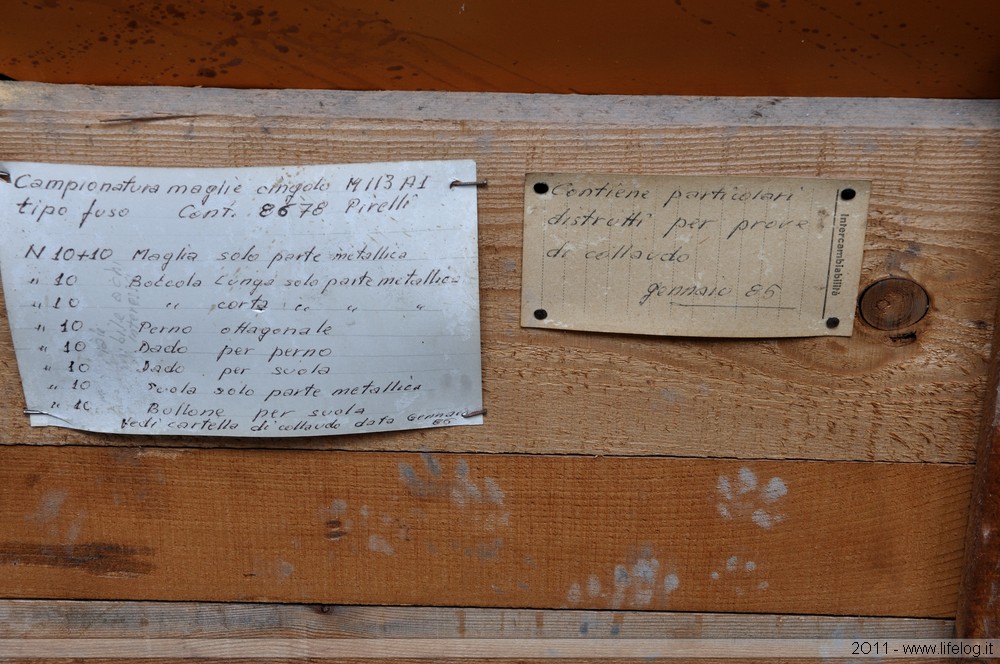 Campionatura maglie cingolo M113 A1
tipo fuso Cont. 8678 Pirelli
N 10+10 Maglia solo parte metallica
" 10 Boccola Lunga solo parte metallica
" 10 " corta " " "
" 10 Perno ottagonale
" 10 Dado per perno
" 10 Dado per suola
" 10 Suola solo parte metallica
" 10 Bullone per suola
Vedi cartella di collaudo data Gennaio
85
Contiene particolari
distrutti per prove
di collaudo
gennaio 85
Intercambiabilità
2011 - www.lifelog.it